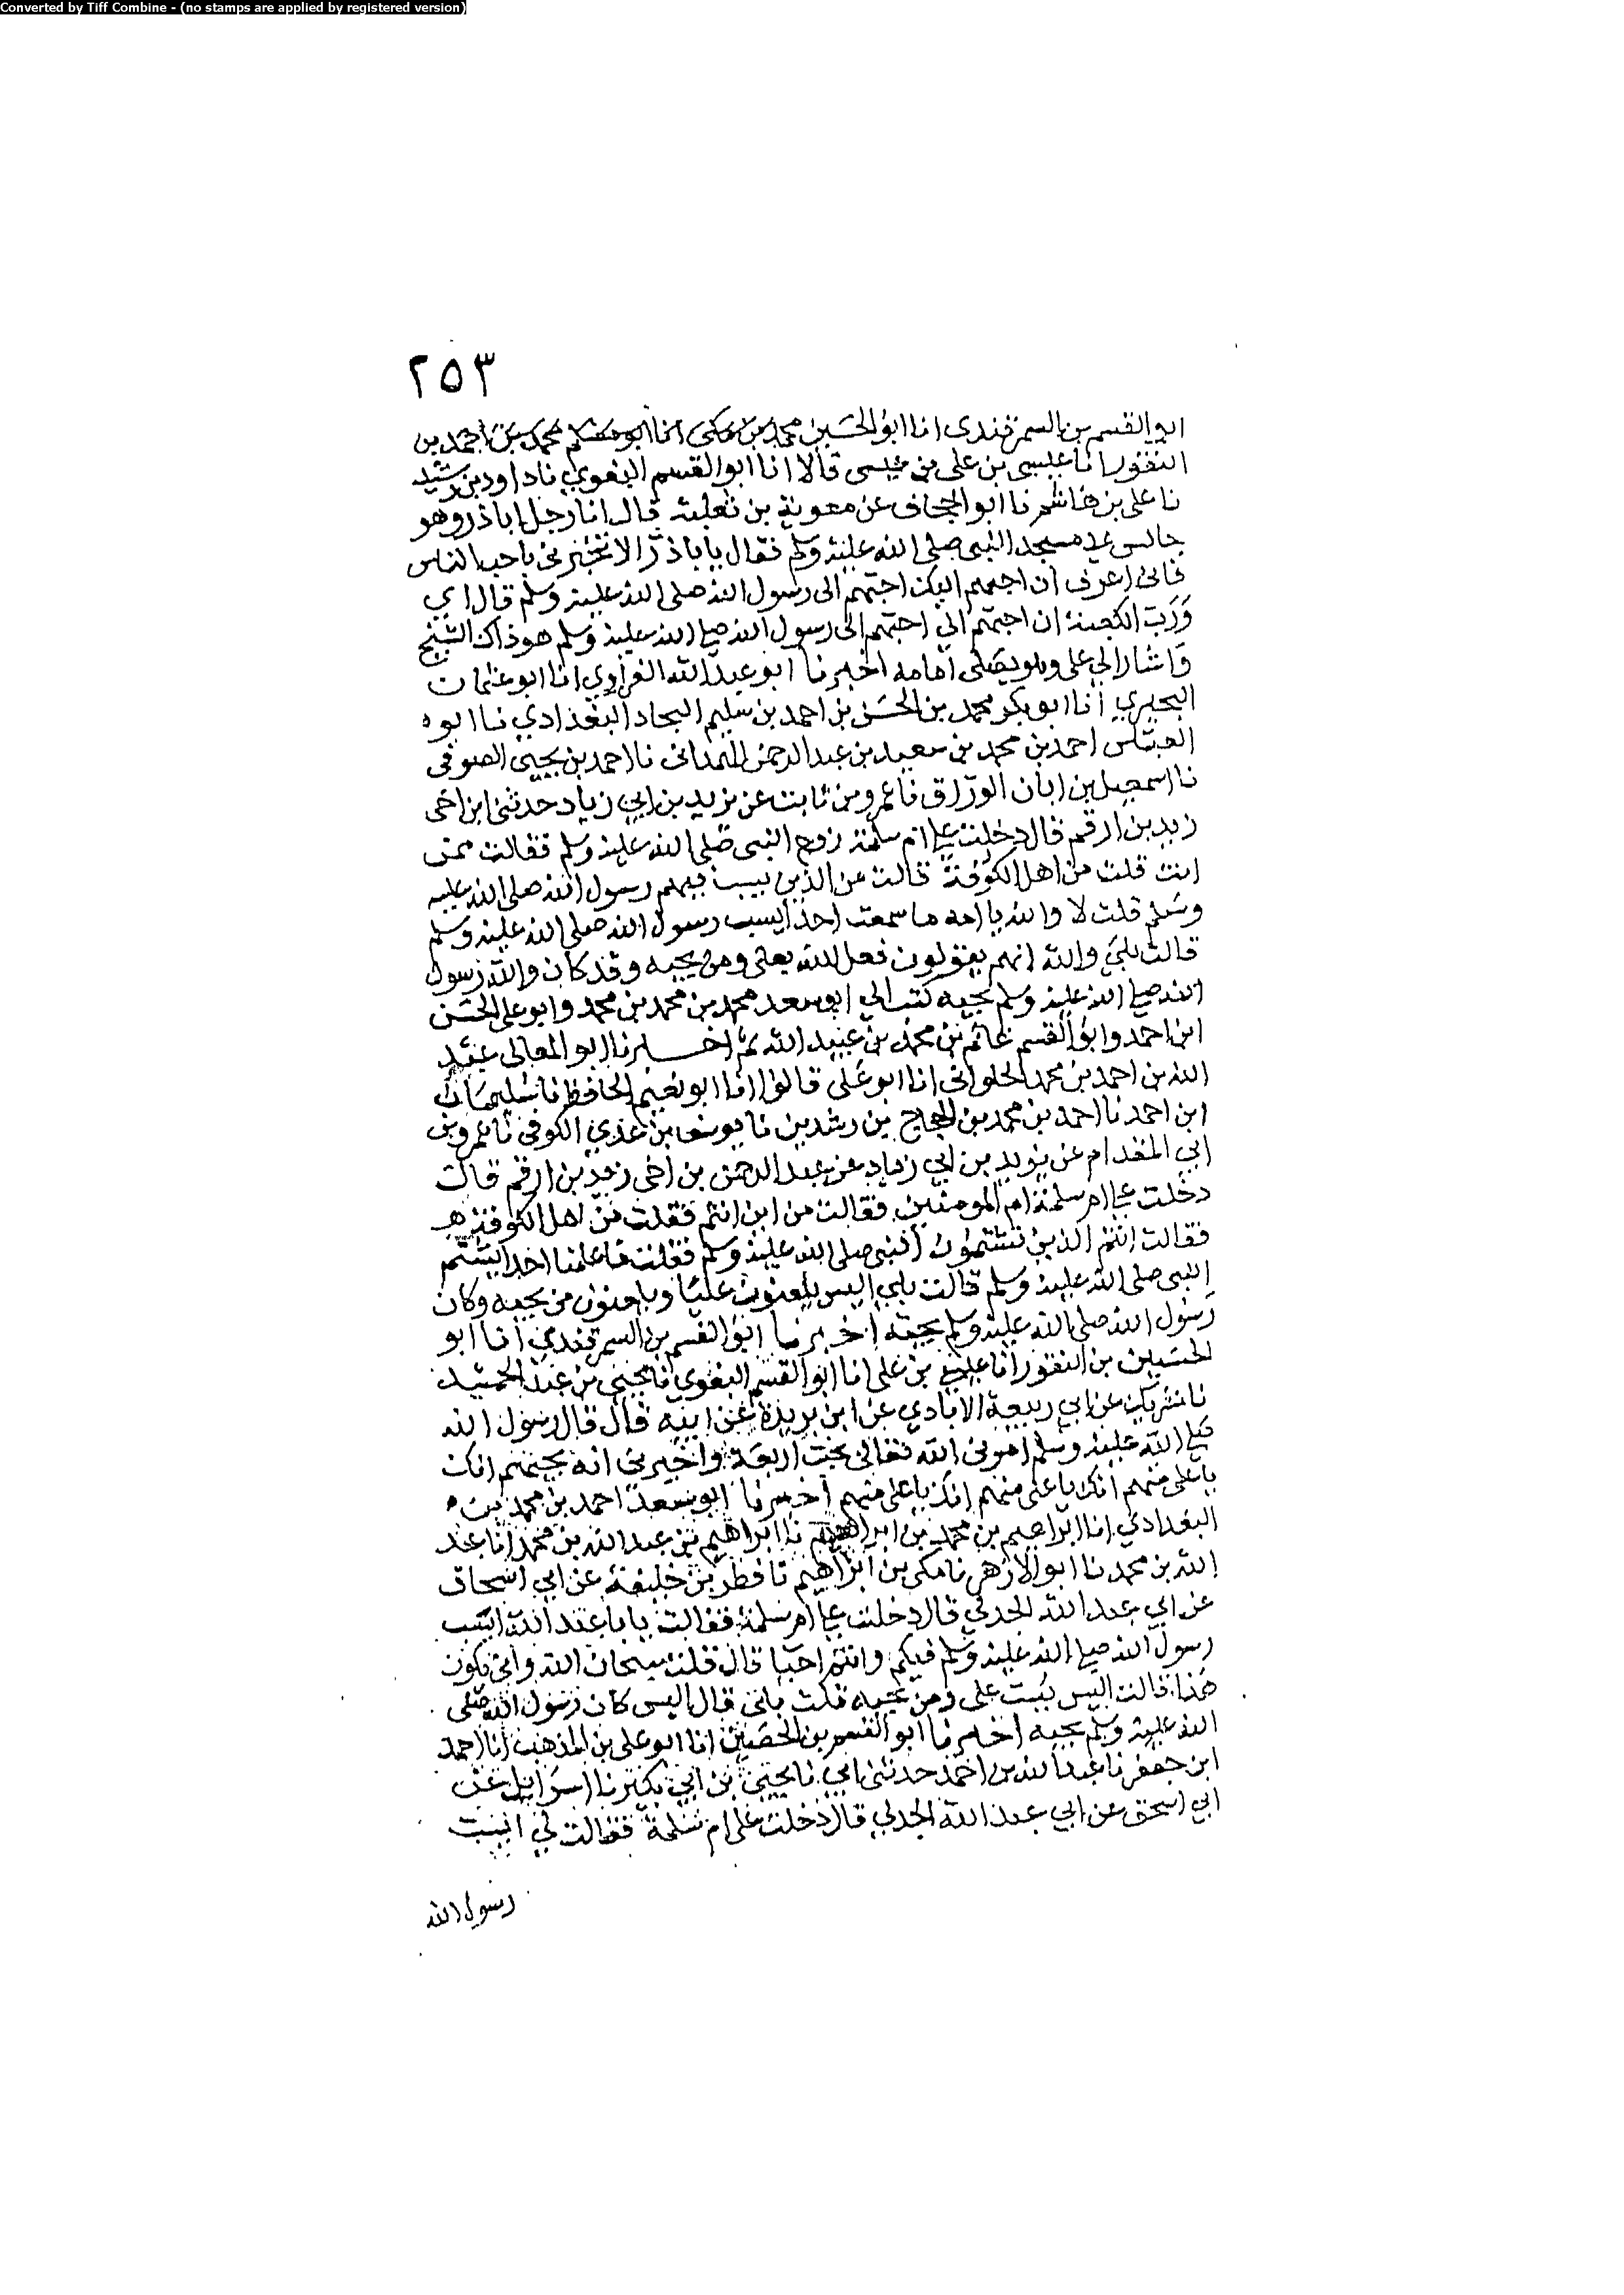 Converted by Tiff Combine - (no stamps are applied by registered version)
٢٥٣
ابو القسم بن السمرقندى انا ابو الحسين محمد بن مكى انا ابو مسلم محمد بن احمد بن
النقور انا عيسى بن على بن عيسى قالا انا ابو القسم البغوي نا داود بن رشيد
نا على بن هاشم نا ابو الجحاف عن معوية بن ثعلبة قال اتا رجل اباذر وهو
جالس في مسجد النبى صلى الله عليه وسلم فقال يا باذر الا تخبرنى باحب الناس
فانى اعرف ان احبهم اليك احبهم الى رسول الله صلى الله عليه وسلم قال اي
ورب الكعبة ان احبهم الي احبهم الى رسول الله صلى الله عليه وسلم هو ذاك الشيخ
واشار الي على وهو يصلى امامه اخبرنا ابو عبد الله الفراوي انا ابو عثمان
البحيري انا ابو بكر محمد بن الحسن بن احمد بن سليم النجاد البغدادي نا ابو
العباس احمد بن محمد بن سعيد بن عبد الرحمن الهمدانى نا احمد بن يحيى الصوفى
نا اسمعيل بن ابان الوراق نا عمرو بن ثابت عن يزيد بن ابي زياد حدثنى ابن اخى
زيد بن ارقم قال دخلت على ام سلمة زوج النبى صلى الله عليه وسلم فقالت ممن
انت قلت من اهل الكوفة قالت من الذين يسب فيهم رسول الله صلى الله عليه
وسلم قلت لا والله يا امه ما سمعت احدا يسب رسول الله صلى الله عليه وسلم
قالت بلى والله انهم يقولون فعل الله بعلى ومن يحبه وقد كان والله رسول
الله صلى الله عليه وسلم يحبه كتب الي ابو سعد محمد بن محمد بن محمد وابو على الحسن
ابن احمد وابو القسم غانم بن محمد بن عبيد الله ثم اخبرنا ابو المعالى عبد
الله بن احمد بن محمد الحلوانى انا ابو على قالوا انا ابو نعيم الحافظ نا سليمان
ابن احمد نا احمد بن محمد بن الحجاج بن رشدين نا يوسف بن عدي الكوفى نا عمرو بن
ابي المقدام عن يزيد بن ابي زياد عن عبد الرحمن بن اخى زيد بن ارقم قال
دخلت على ام سلمة ام المومنين فقالت من اين انتم فقلت من اهل الكوفة
فقالت انتم الذين تشتمون النبى صلى الله عليه وسلم فقلت ما علمنا احدا يشتم
النبى صلى الله عليه وسلم قالت بلي اليس يلعنون عليا ويلعنون من يحبه وكان
رسول الله صلى الله عليه وسلم يحبه اخبرنا ابو القسم بن السمرقندي انا ابو
الحسين بن النقور انا عيسى بن على انا ابو القسم البغوي نا يحيى بن عبد الحميد
نا شريك عن ابي ربيعة الايادي عن ابن بريدة عن ابيه قال قال رسول الله
صلى الله عليه وسلم امرنى الله تعالى بحب اربعة واخبرنى انه يحبهم انك
يا على منهم انك يا على منهم انك يا على منهم اخبرنا ابو سعد احمد بن محمد بن
البغدادي انا ابراهيم بن محمد بن ابراهيم نا ابراهيم بن عبد الله بن محمد انا عبد
الله بن محمد نا ابو الازهر نا مكى بن ابراهيم نا فطر بن خليفة عن ابي اسحاق
عن ابي عبد الله الجدلي قال دخلت على ام سلمة فقالت يا با عبد الله ايسب
رسول الله صلى الله عليه وسلم فيكم وانتم احيا قال قلت سبحان الله وانى يكون
هذا قالت اليس يسب على ومن يحبه قلت بلى قال اليس كان رسول الله صلى
الله عليه وسلم يحبه اخبرنا ابو القسم بن الحصين انا ابو على بن المذهب انا احمد
ابن جعفر نا عبد الله بن احمد حدثنى ابي نا يحيى بن ابي بكير نا اسرايل عن
ابي اسحق عن ابي عبد الله الجدلي قال دخلت على ام سلمة فقالت لي ايسب
رسول الله